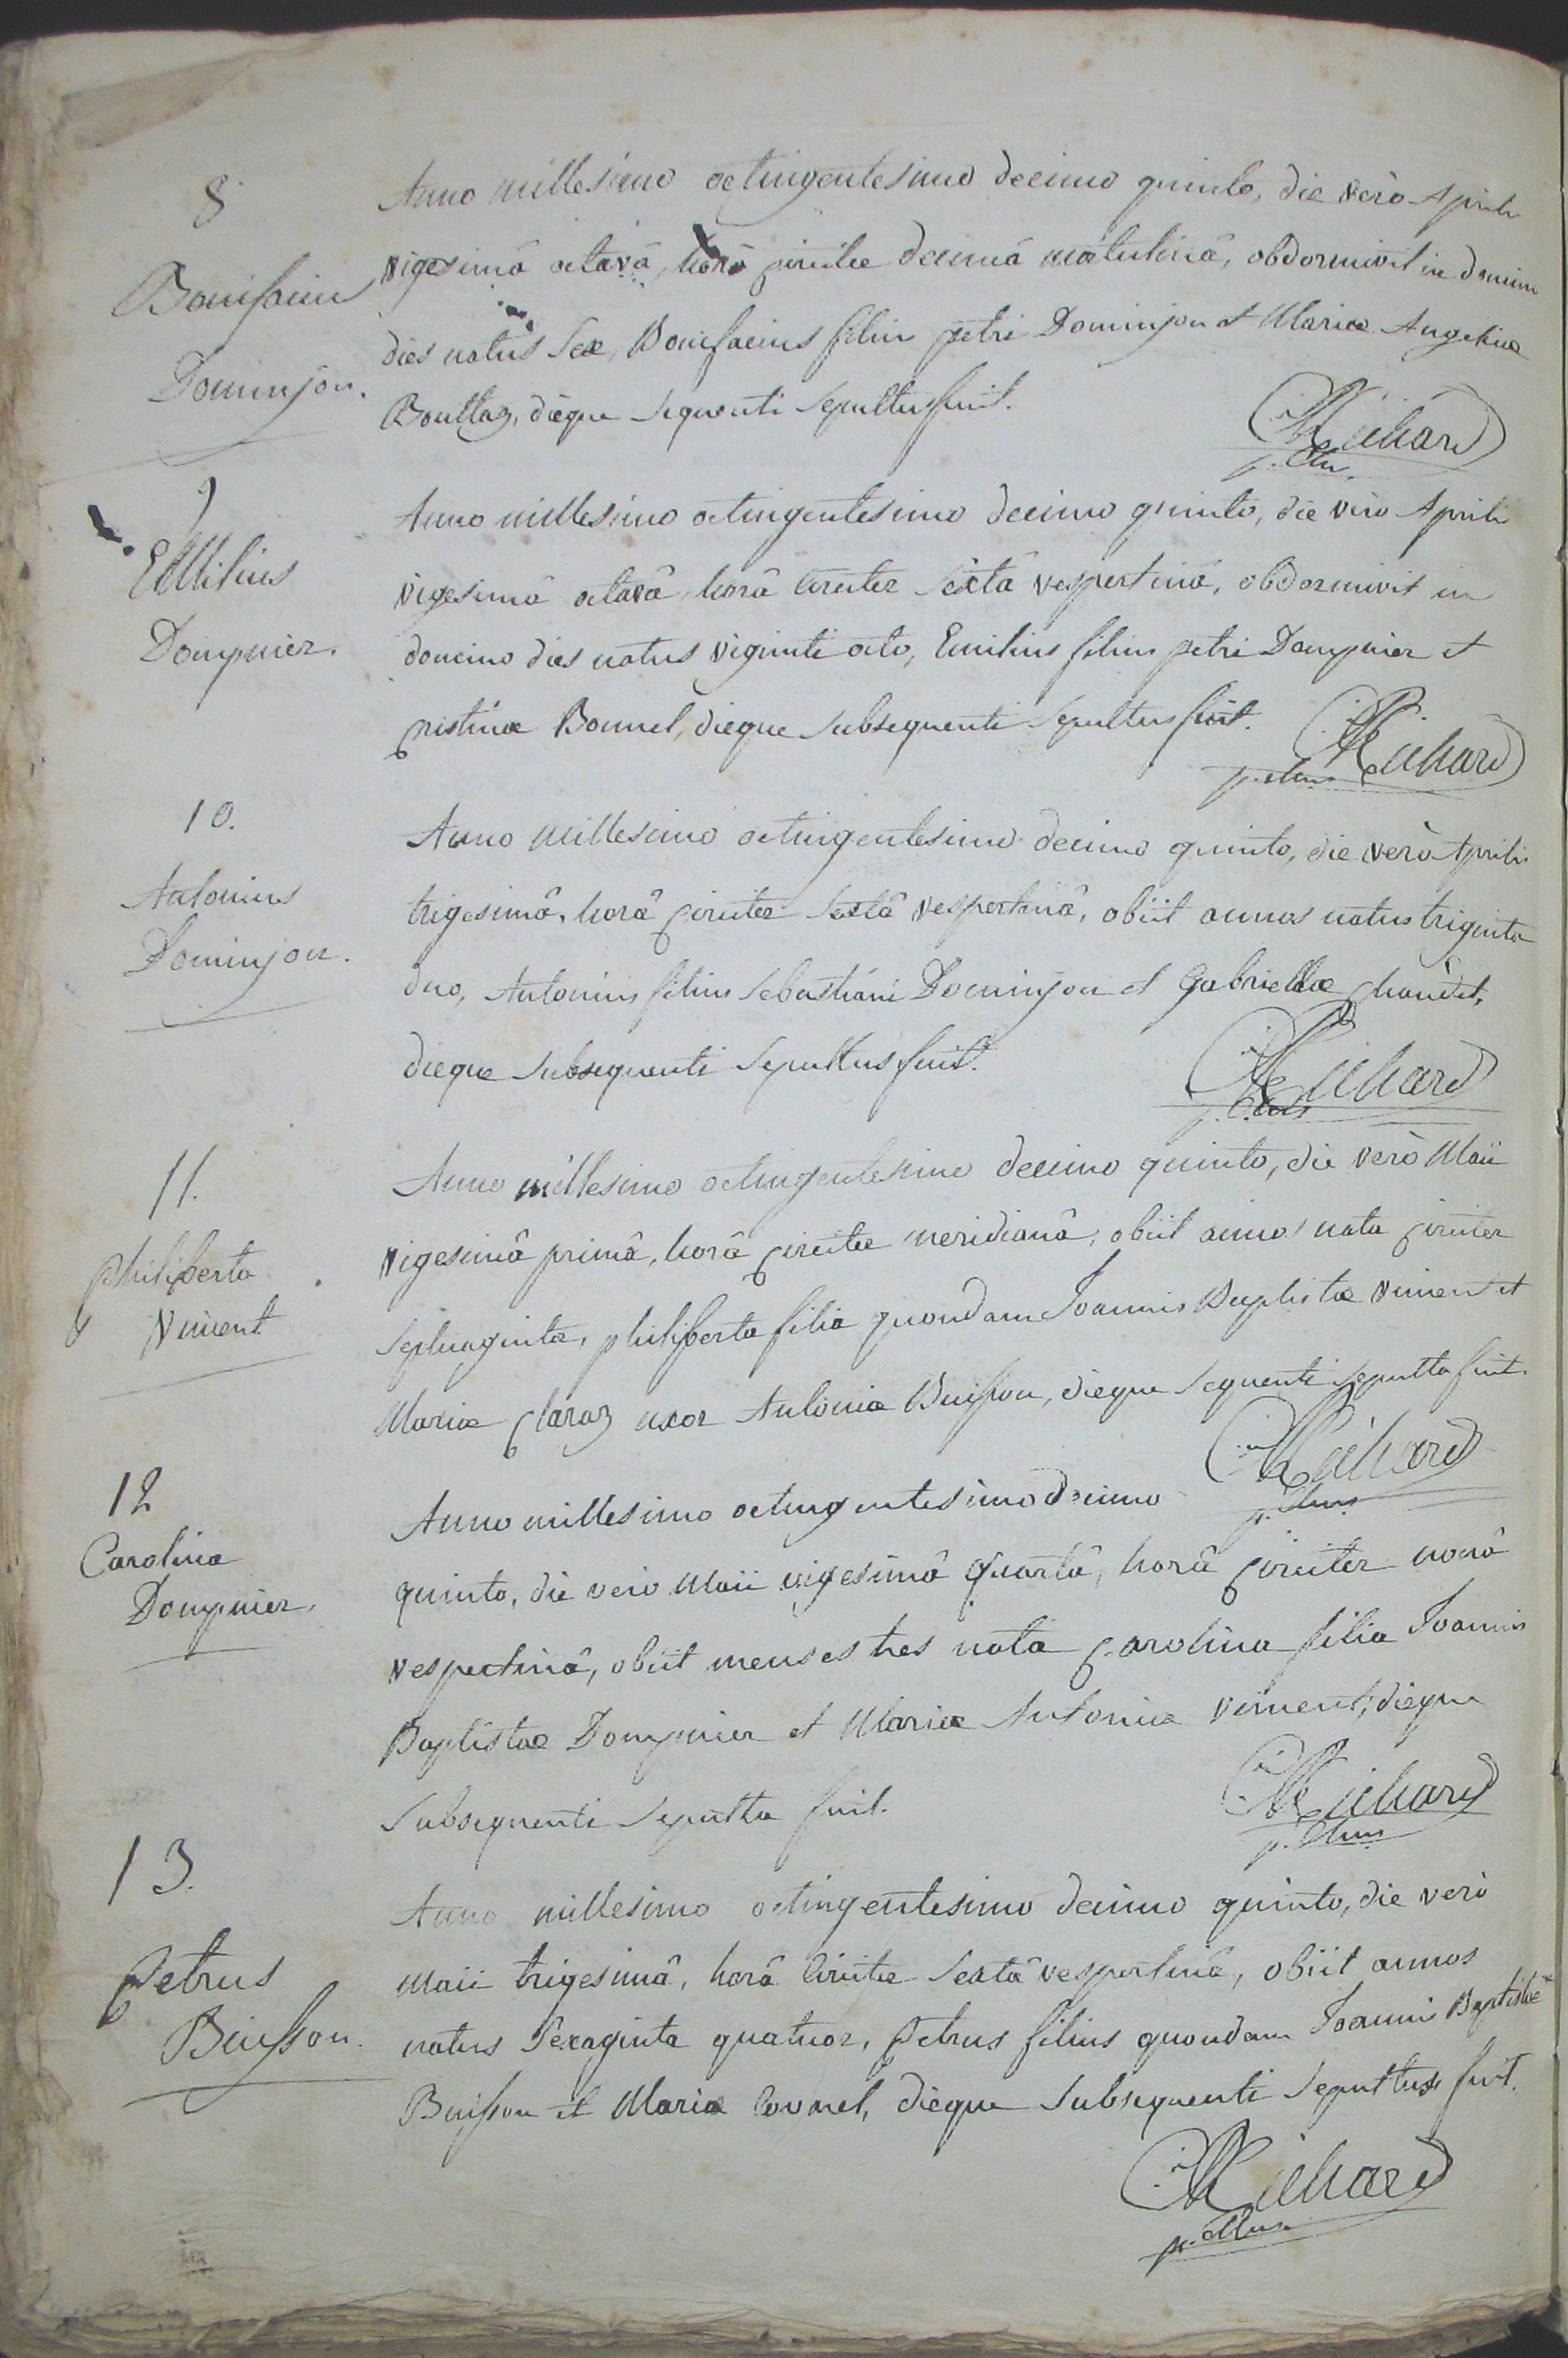 8
Bonifacius
Dominjon.
Anno millesimo octingentesimo decimo quinto, die verò Aprilis
vigesimâ octavâ, horâ circiter decimâ matutinâ, obdormivit in domino
dies natus sex, Bonifacius filius petri Dominjon et Mariæ Angelicæ
Bouttaz, dièque sequenti sepultus fuit.
Richard
9
EMilius
Dompnier.
Anno millesimo octingentesimo decimo quinto, die verò Aprilis
vigesimâ octavâ horâ circiter sextâ vespertinâ, obdormivit in
domino dies natus viginti octo, Emilius filius petri Dompnier et
cristinæ Bonnel, dieque subsequenti sepultus fuit.
Richard
10.
Antonius
Dominjon.
Anno millesimo octingentesimo decimo quinto, die verò Aprilis
trigesimâ, horâ circiter sextâ vespertinâ, obiit annos natus triginta
duo, Antonius filius Sebastiani Dominjon et Gabriellæ
dieque subsequenti sepultus fuit.
Richard
11.
philiberta
Viment
Anno millesimo octingentesimo decimo quinto, die verò Maii
vigesimâ primâ, horâ circiter meridianâ, obiit annos nata circiter
septuaginta, philiberta filia quondam Joannis Baptistæ viment et
Mariæ claraz uxor Antonii Buisson, dieque sequenti sepulta fuit.
Richard
12
Carolina
Dompnier.
Anno millesimo octingentesimo decimo
quinto, die verò Maii vigesimâ quartâ, horâ circiter nonâ
vespertinâ, obiit menses tres nata carolina filia Joannis
Baptistæ Dompnier et Mariæ Antoniæ viment, dieque
subsequenti sepulta fuit.
Richard
13.
petrus
Buisson.
Anno millesimo octingentesimo decimo quinto, die verò
Maii trigesimâ, horâ circiter sextâ vespertinâ, obiit annos
natus sexaginta quatuor, petrus filius quondam Joannis Baptistæ
Buisson et Mariæ dieque subsequenti sepultus fuit.
Richard